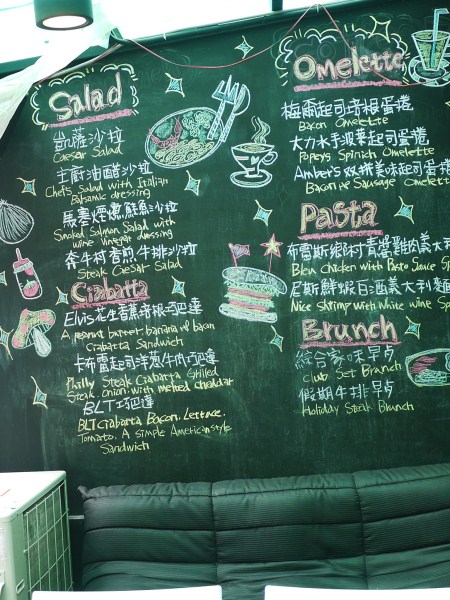 Salad
凱薩沙拉
Caesar Salad
主廚油醋沙拉
Chefs Salad with Italian
Balsamic dressing
馬賽煙燻鮭魚沙拉
Smoked Salmon Salad with
wine Vinegar dressing
香煎牛排沙拉
Steak Caesar Salad
Ciabatta
Elvis花生香蕉培根巧巴達
A peanut butter banana w/ bacon
Ciabatta Sandwich
卡布雷起司洋蔥牛肉巧巴達
Philly Steak Ciabatta Grilled
Steak, Onion with melted cheddar
BLT巧巴達
BLT Ciabatta Bacon, Lettence,
Tomato. A simple American style
Sandwich
Omelette
起司培根蛋捲
Bacon Omelette
大力水手菠菜起司蛋捲
Popeys Spinich Omelette
Amber's 双拼美味起司蛋捲
Bacon Sausage Omelette
Pasta
布雷斯鄉村青醬雞肉義大
Bleu Chicken with Pasto Sauce S
尼斯鮮蝦白酒義大利麵
Nice shrimp with white wine Sp
Brunch
綜合家味早午
Club Set Branch
假期牛排早午
Holiday Steak Brunch